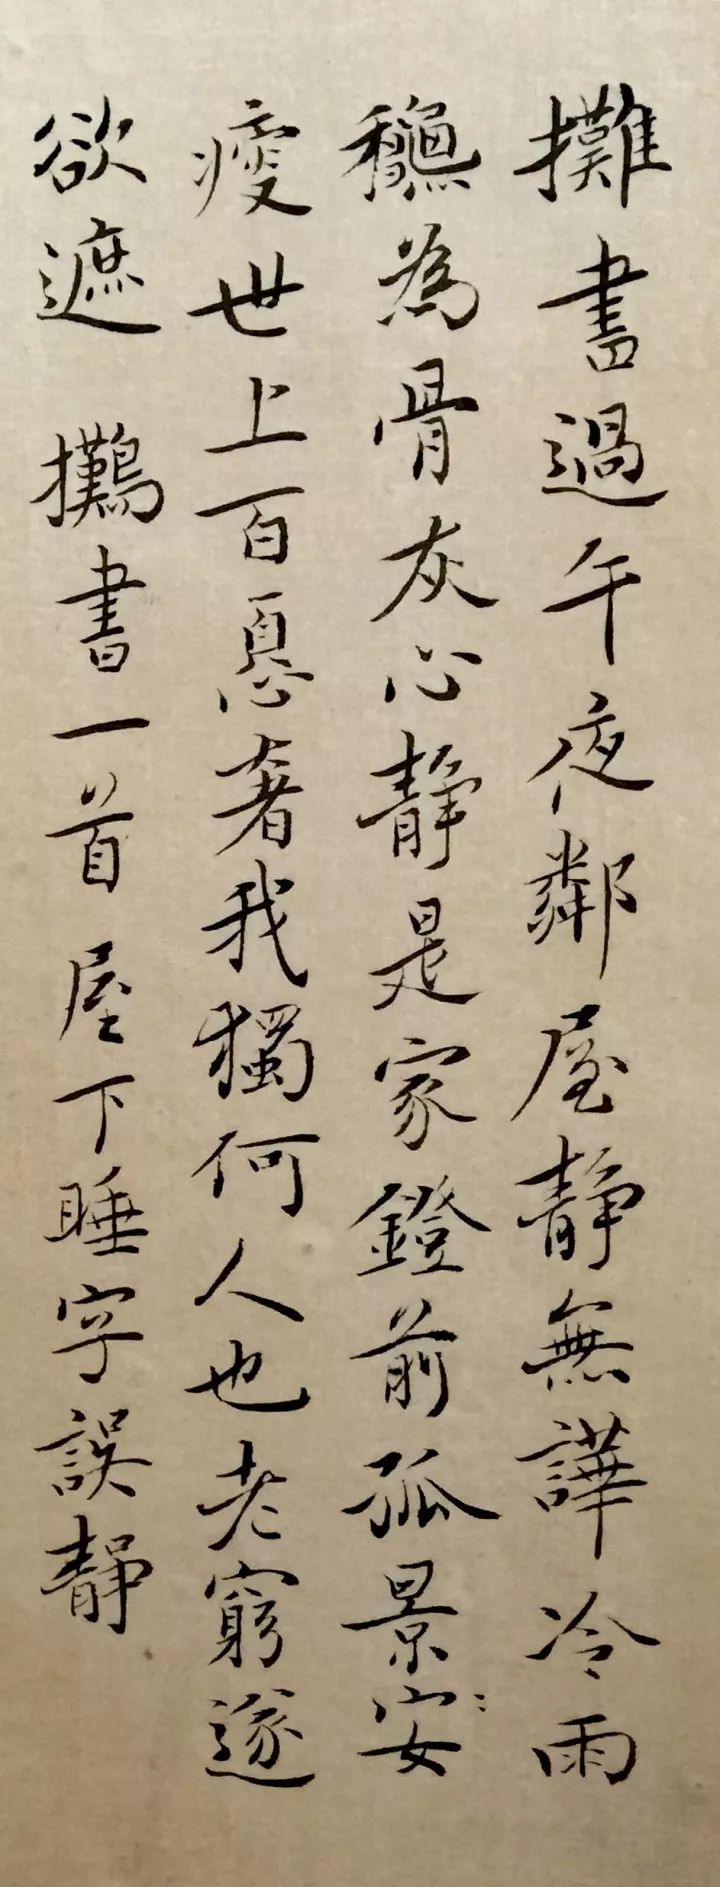 攤書過午夜鄰屋靜無譁冷雨
龝為骨灰心靜是家鐙前孤景安
瘦世上百憂奢我獨何人也老窮遂
欲遮 攤書一首 屋下睡字誤靜